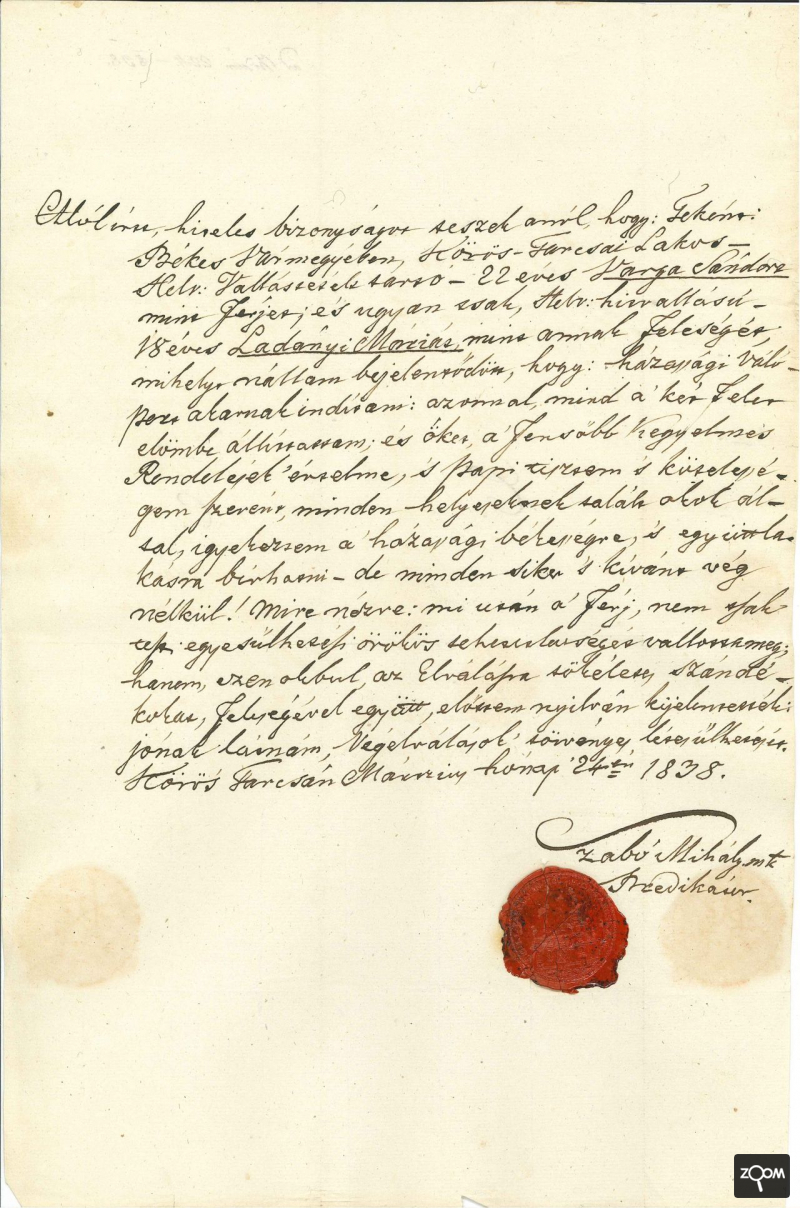 Alól írtt, hiteles bizonyságot teszek arról, hogy: Teként:
Békes Vármegyében, Körös-Tarcsai Lakos –
Helv: Vallástételt tartó – 22 éves Varga Sándort
mint Férjet; és ugyan tsak, Helv: hitvallású –
18 éves Ladányi Máriát, mint annak Feleségét,
mihelyt nállam bejelentődött, hogy: házassági Váló –
pert akarnak indítani: azonnal, mind a' két Felet
előmbe állíttattam; és őket, a' Fensőbb Kegyelmes
Rendelések' értelme, 's papi tisztem 's kötelessé –
gem szerént, minden helyeseknek talált okok ál –
tal, igyekeztem a' házassági békességre, 's együttla –
kásra bírhatni – de minden siker 's kívánt vég
nélkül! Mire nézve: mi után a' Férj, nem tsak
egyesülhetési örökös tehetetlenségét vallotta meg;
hanem, ezen okbul, az Elválásra tökéletes szándé –
kokat, Feleségével együtt, előttem nyilván kijelentették:
jónak látnám, Végelválások' törvényes létesülhetését.
Körös Tarcsán Márczius hónap' 24én 1838.
Szabó Mihály mk
Predikátor.
ZOOM